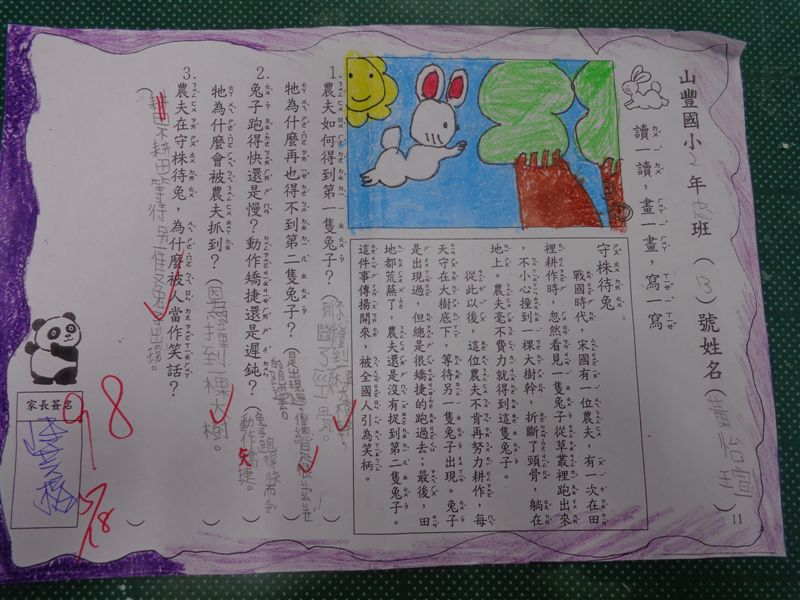 山豐國小2年忠班（13）號姓名（
讀一讀，畫一畫，寫一寫
守株待兔
戰國時代，宋國有一位農夫，有一次在田
裡耕作時，忽然看見一隻兔子從草叢裡跑出來
，不小心撞到一棵大樹幹，折斷了頸骨，躺在
地上。農夫毫不費力就得到這隻兔子。
從此以後，這位農夫不肯再努力耕作，每
天守在大樹底下，等待另一隻兔子出現。兔子
是出現過，但總是很矯捷的跑過去；最後，田
地都荒蕪了，農夫還是沒有捉到第二隻兔子。
這件事傳揚開來，被全國人引為笑柄。
1.農夫如何得到第一隻兔子？（
折斷了頸骨。）
牠為什麼再也得不到第二隻兔子？（是出現過，但總是很
的跑過去。）
2.兔子跑得快還是慢？動作矯捷還是遲鈍？（兔子跑得快而且
動作矯捷。）
牠為什麼會被農夫抓到？（因為撞到一棵大樹。）
3.農夫在守株待兔，為什麼被人當作笑話？
（不耕田等待另一隻兔子出現。）
家長簽名
98
5/18
11